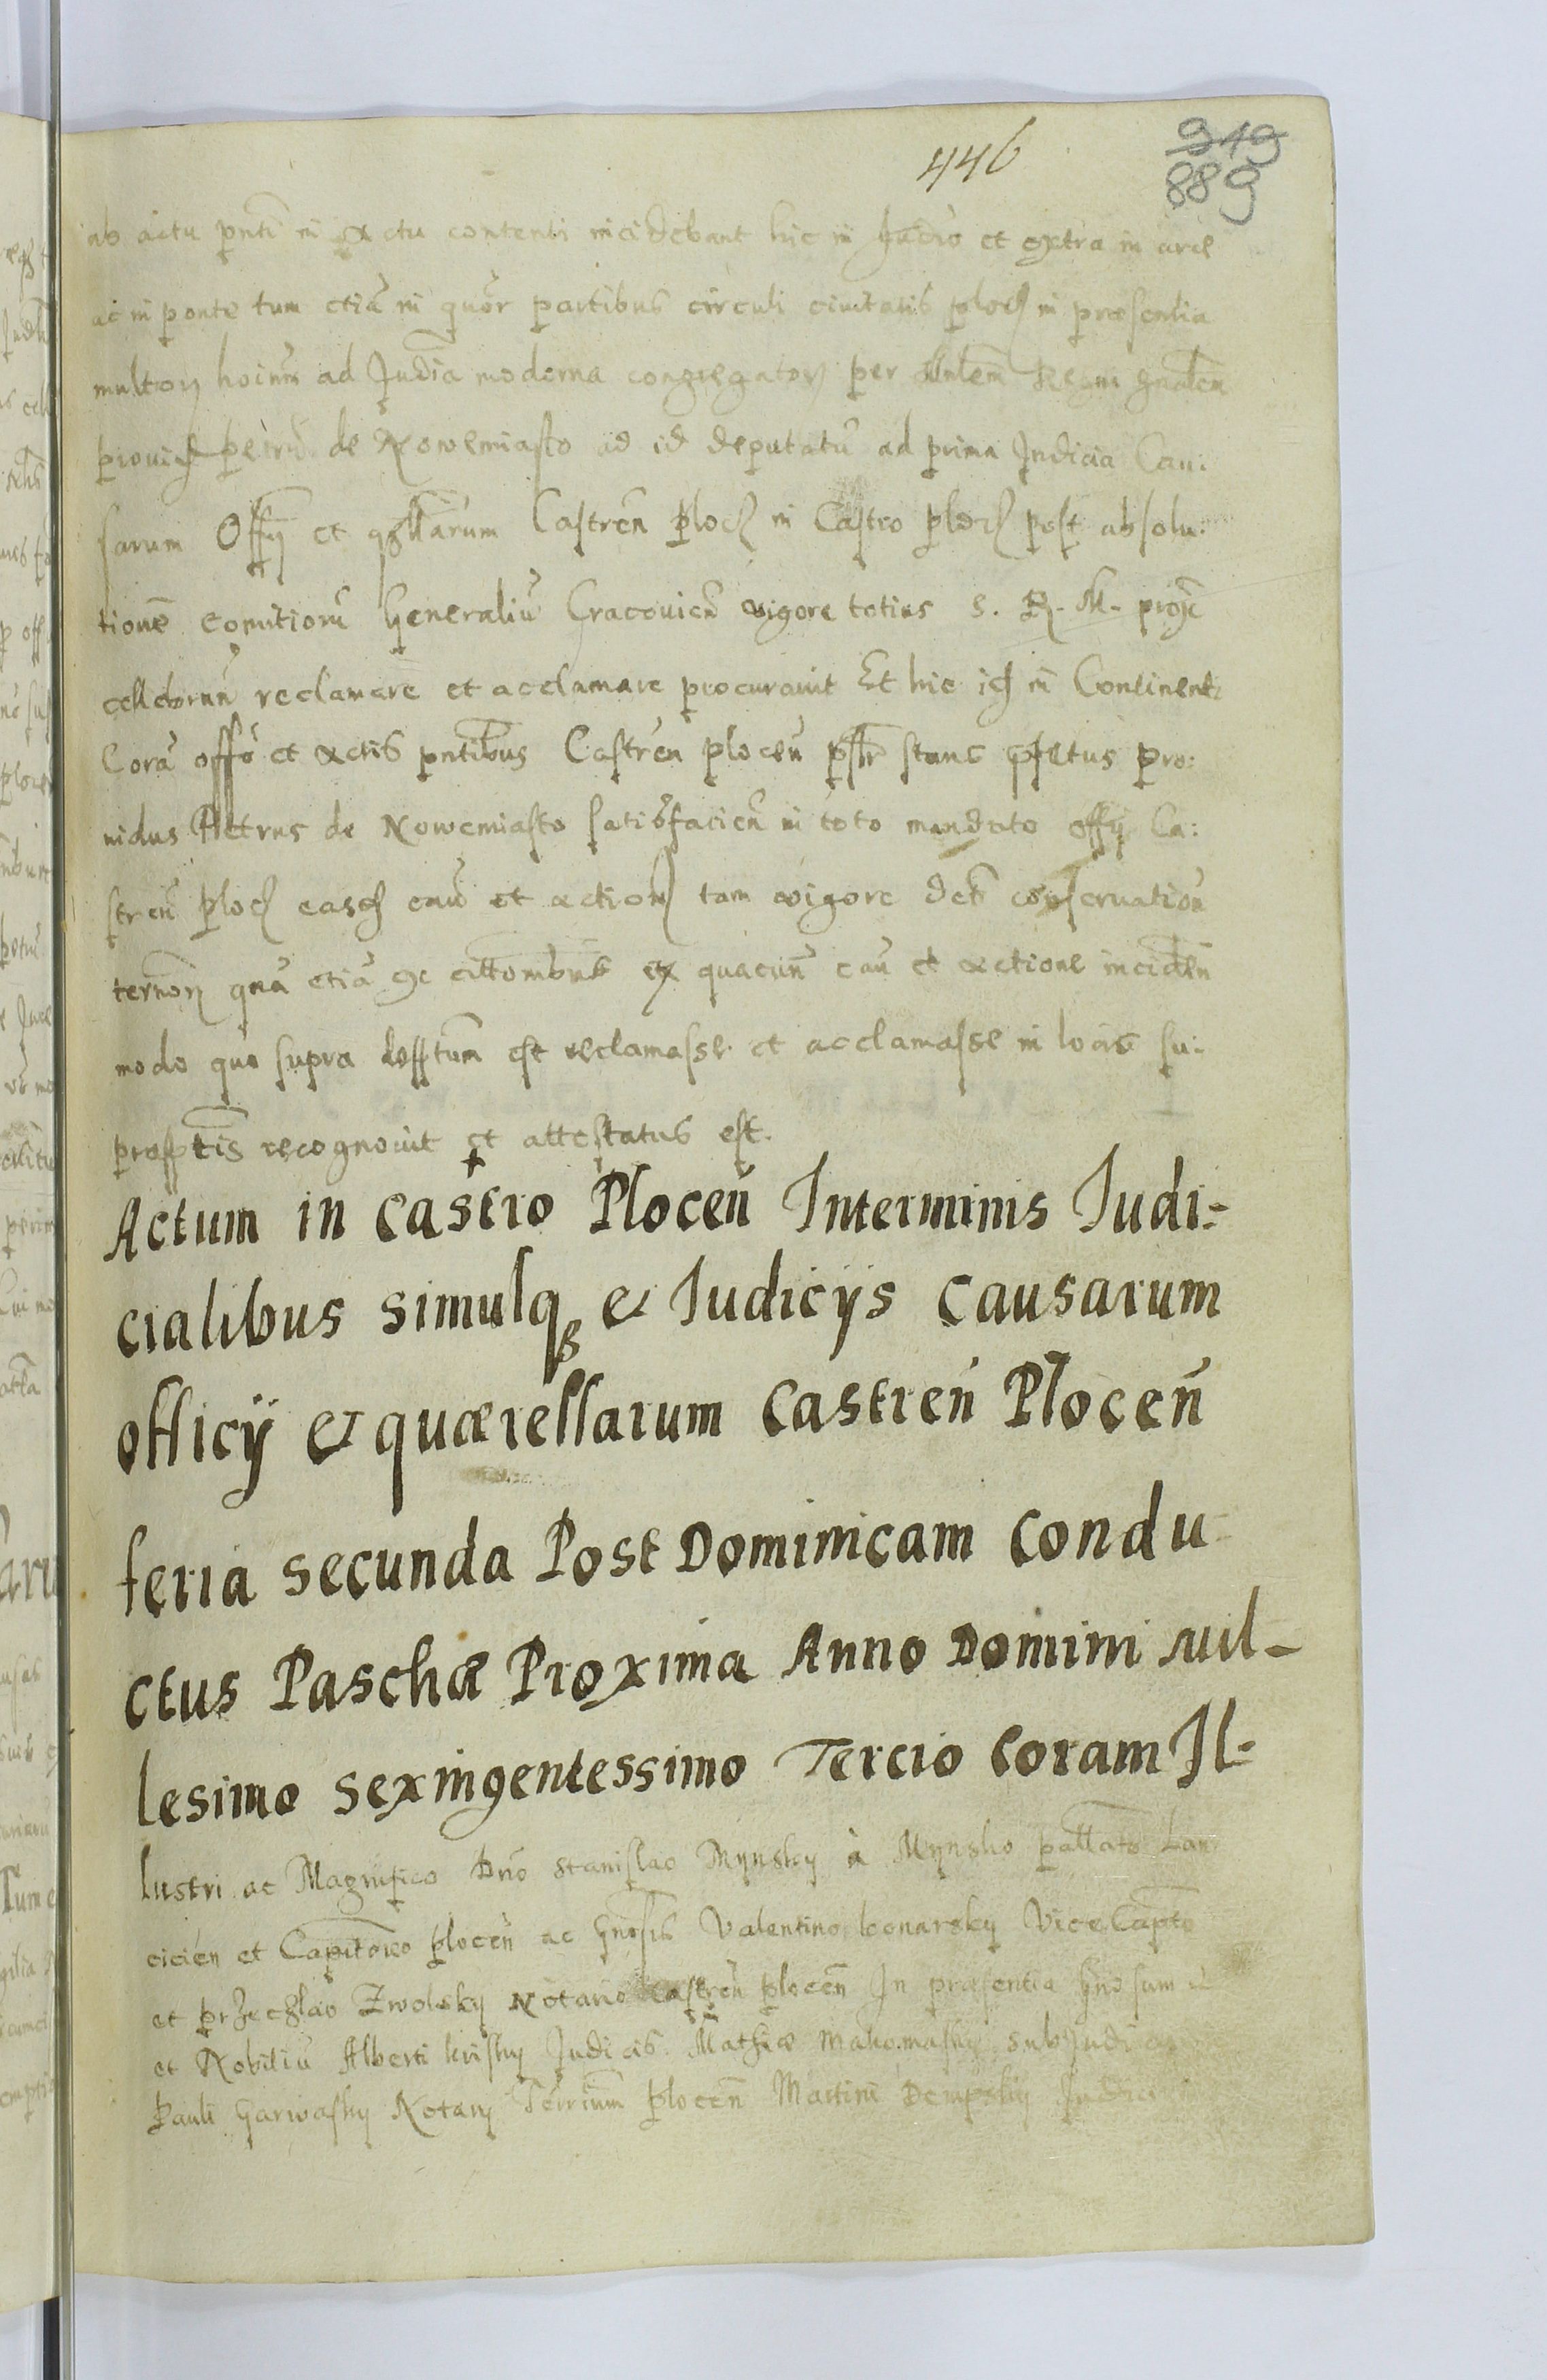 446
919
889
ab actu pnti in actu contenti incidebant hic in Judio et extra in arce
ac in ponte tum etiā in quor partibus circuli ciuitatis ploc in præsentia
multor hoinū ad Judia moderna congregator per Mnlem Regni gnalem
prouid petrū de Nowemiasto ad id deputatū ad prima Judicia Cau:
sarum Offij et qrllarum Castren ploc in Castro ploc post absolu:
tionē comitiorū Generaliū Cracovien vigore totius S. R. M. prose
reclamare et acclamare procurauit Et hic in Continenti
Corā offo et actis pntibus Castren plocen stans pfatus pro:
uidus Petrus de Nowemiasto satisfacien in toto mandato offij Ca:
stren ploc easd et action tam vigore conseruation
quā etiā ex quacun cau et actione inciden
modo quo supra est reclamasse et acclamasse in locis su:
præsptis recognouit et attestatus est.
Actum in Castro Plocen Interminis Iudi:
cialibus simulq & Iudicijs Causarum
officij & quærellarum Castren Plocen
feria secunda Post Dominicam Condu
ctus Paschæ Proxima Anno Domini Mil-
lesimo sexingentessimo Tercio Coram Il-
lustri ac Magnifico Dno Stanislao Mynsky à Mynsko pallato Lan
cicien et Capitaneo plocen ac Gnosis Valentino bonarsky Vice Capto
et przeczlao Zwolsky Notario Castren plocen In præsentia Gnosum
et Nobiliū Alberti kirsky Judicis Mathiæ Makomasky subJudicis
Pauli Garwasky Notarij Terrium plocen Martini Dempsky Judici